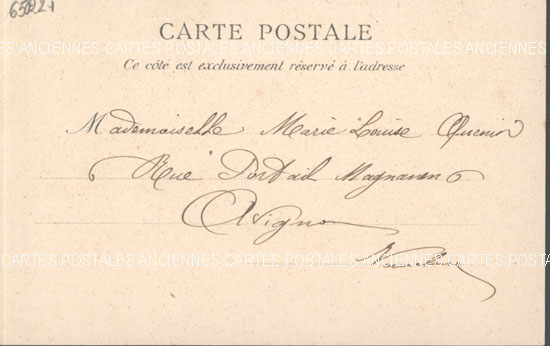 CARTE POSTALE
CARTES POSTALES ANCIENNES CARTES POSTALES ANCIENNES CARTES POSTALES
Ce côté est exclusivement réservé à l'adresse
Mademoiselle Marie Louise
Rue Portail Magnanen
Avignon
CARTES POSTALES ANCIENNES CARTES POSTALES ANCIENNES CARTES POSTALES